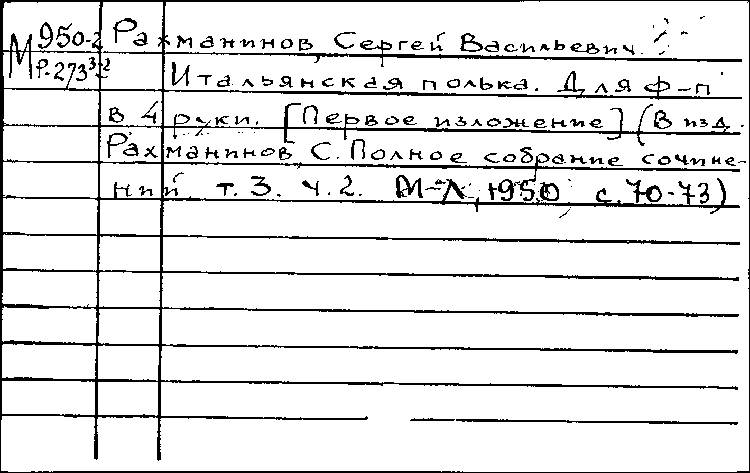 М 950-2 Рахманинов, Сергей Васильевич.
Р-273 3-2 Итальянская полька. Для ф-п
в 4 руки. [Первое изложение] (В изд.
Рахманинов, С. Полное собрание сочине-
ний т. 3. ч. 2. М-Л, 1950, с. 70-73)